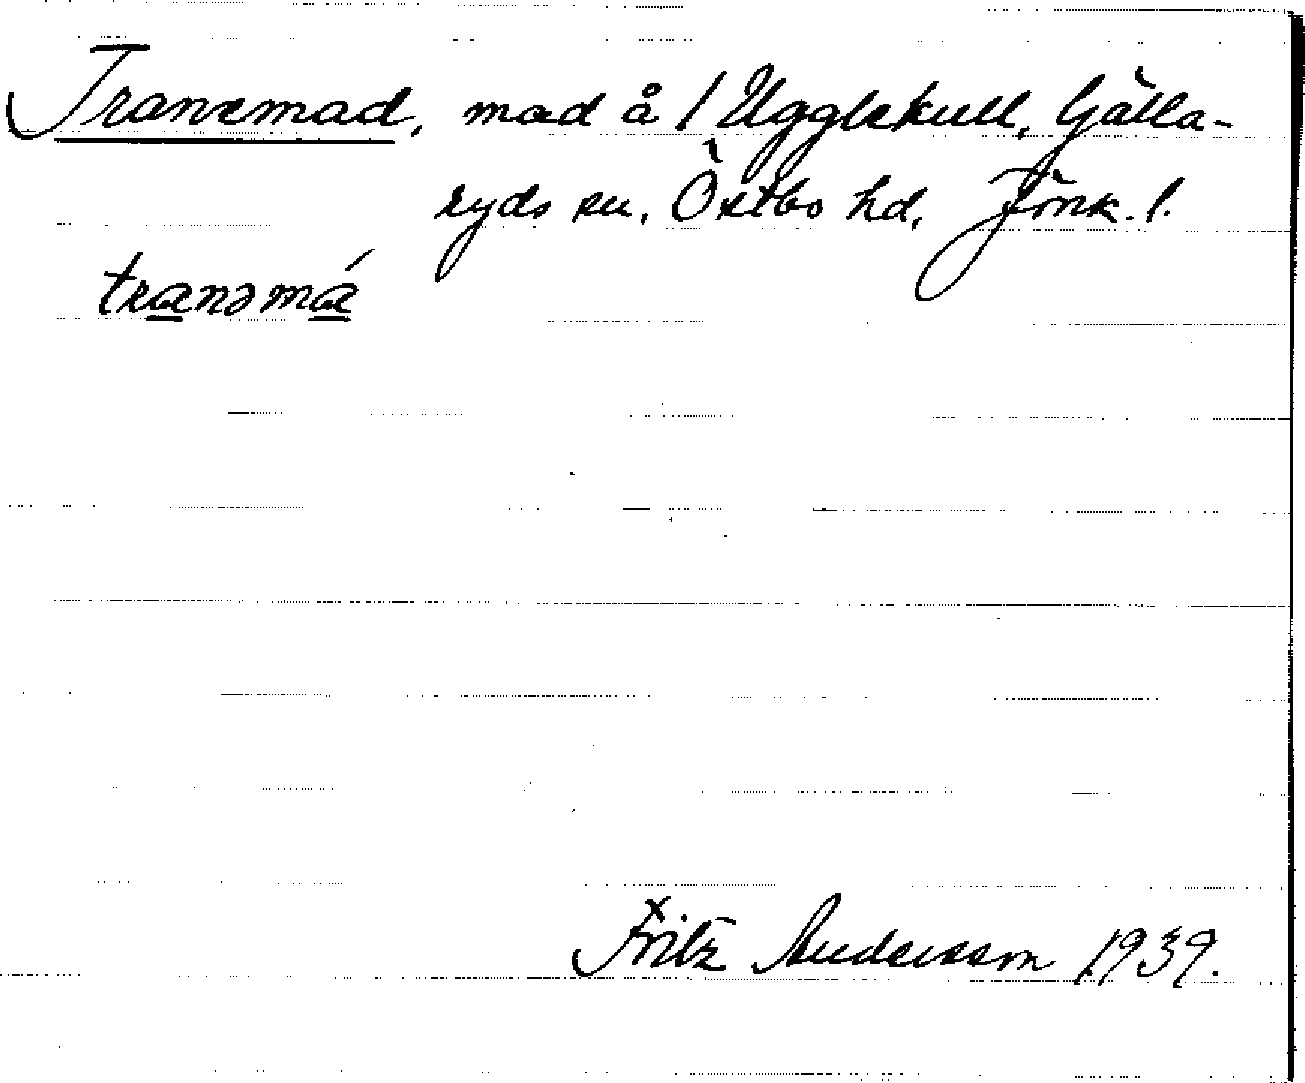 Tranemad, mad å 1 Ugglekull, Gälla-
ryds sn, Östbo hd, Jönk. l.
tranəmá
Fritz Andersson 1939.